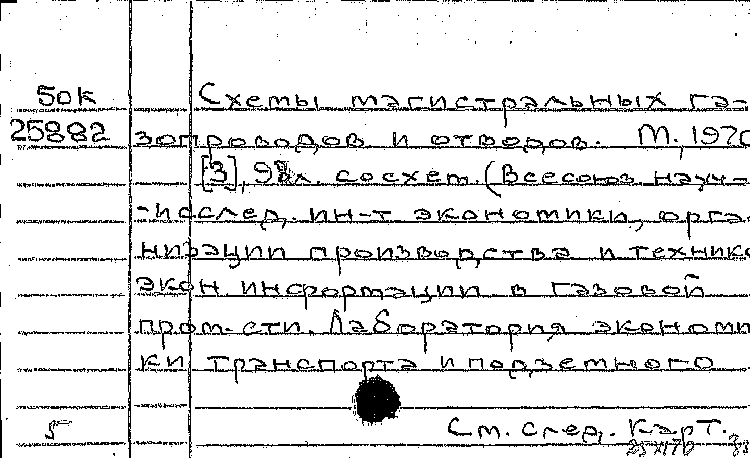 50к Схемы магистральных га-
25882 зопроводов и отводов. М., 1970
[3], 98л. со схем. (Всесоюз. науч-
-исслед. ин-т экономики, орга-
низации производства и технико
экон информации в газовой
пром-сти. Лаборатория экономи
ки транспорта и подземного
5 См. след. карт.